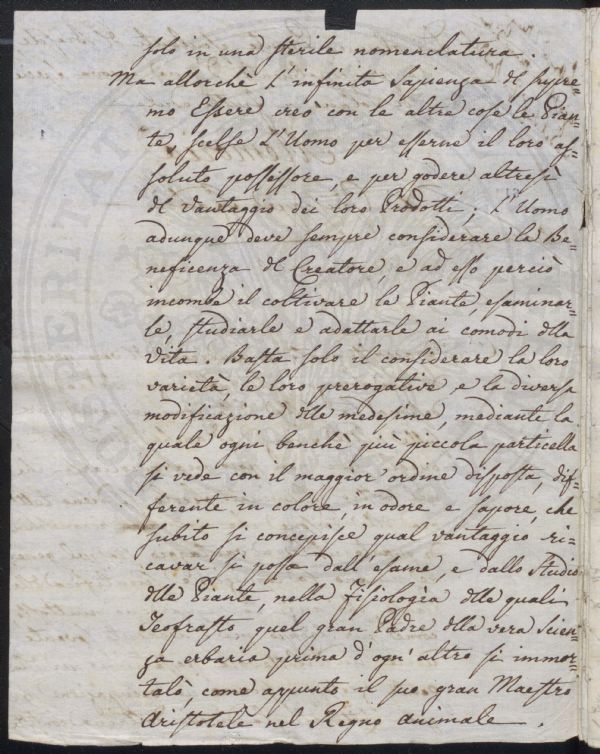 solo in una sterile nomenclatura.
Ma allorchè l'infinita Sapienza dl supre=
mo Essere creò con le altre cose le Pian=
te, scelse l'Uomo per esserne il loro as=
soluto possessore, e per godere altresì
dl vantaggio dei loro Prodotti; l'Uomo
adunque deve sempre considerare la Be=
neficenza dl Creatore, e ad esso perciò
incombe il coltivare le Piante, esaminar=
le, studiarle e adattarle ai comodi dlla
vita. Basta solo il considerare la loro
varietà, le loro prerogative, e la diversa
modificazione dlle medesime, mediante la
quale ogni benchè più piccola particella
si vede con il maggior ordine disposta, dif=
ferente in colore, in odore e sapore, che
subito si concepisce qual vantaggio ri=
cavar si possa dall'esame, e dallo studio
dlle Piante, nella Fisiologia dlle quali
Teofrasto quel gran Padre dlla vera scien=
za erbaria prima d'ogn'altro si immor=
talò, come appunto il suo gran Maestro
Aristotele nel Regno animale.